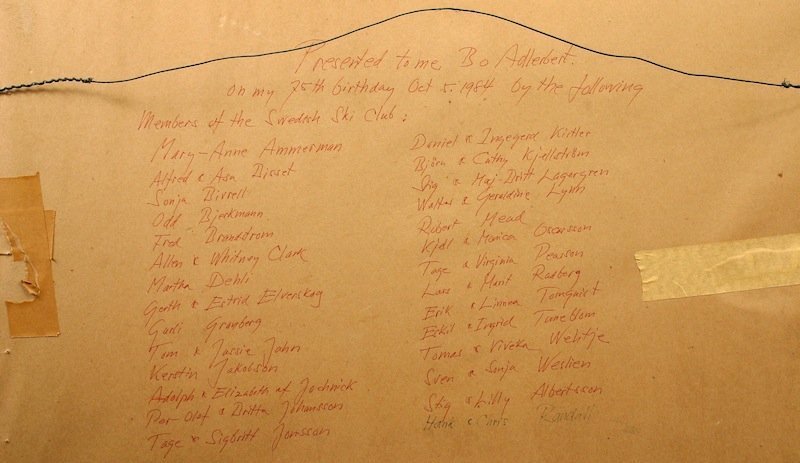 Presented to me, Bo Adlerbert.
on my 75th birthday Oct 5. 1984 by the following
Members of the Swedish Ski Club:
Mary-Anne Ammerman
Alfred & Asa Bisset
Sonja Birrell
Odd Bjerkmann
Fred Brandstrom
Allen & Whitney Clark
Martha Dehli
Gerth & Estrid Elvenskag
Garli Granberg
Tom & Jassie Jahn
Kerstin Jakobson
Adolph & Elizabeth af Jochnick
Per Olof & Britta Johansson
Tage & Sigbritt Jonsson
Daniel & Ingegerd Kirtler
Björn & Cathy Kjellström
Stig & Maj-Britt Lagergren
Walter & Geraldine Lynn
Robert Mead
Kjell & Monica Oscarsson
Tage & Virginia Pearson
Lars & Marit Radberg
Erik & Linnea Tornquist
Eskil & Ingrid Tuneblom
Tomas & Viveka Welitje
Sven & Sonja Weslien
Stig & Lilly Albertsson
Hans & Chris Randall